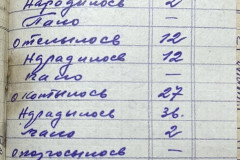 Нарадилось 2
Пало —
отелилось 12
Нарадилось 12
Пало —
окотилось 27
Нарадилось 36.
Пало 2
опоросилось —